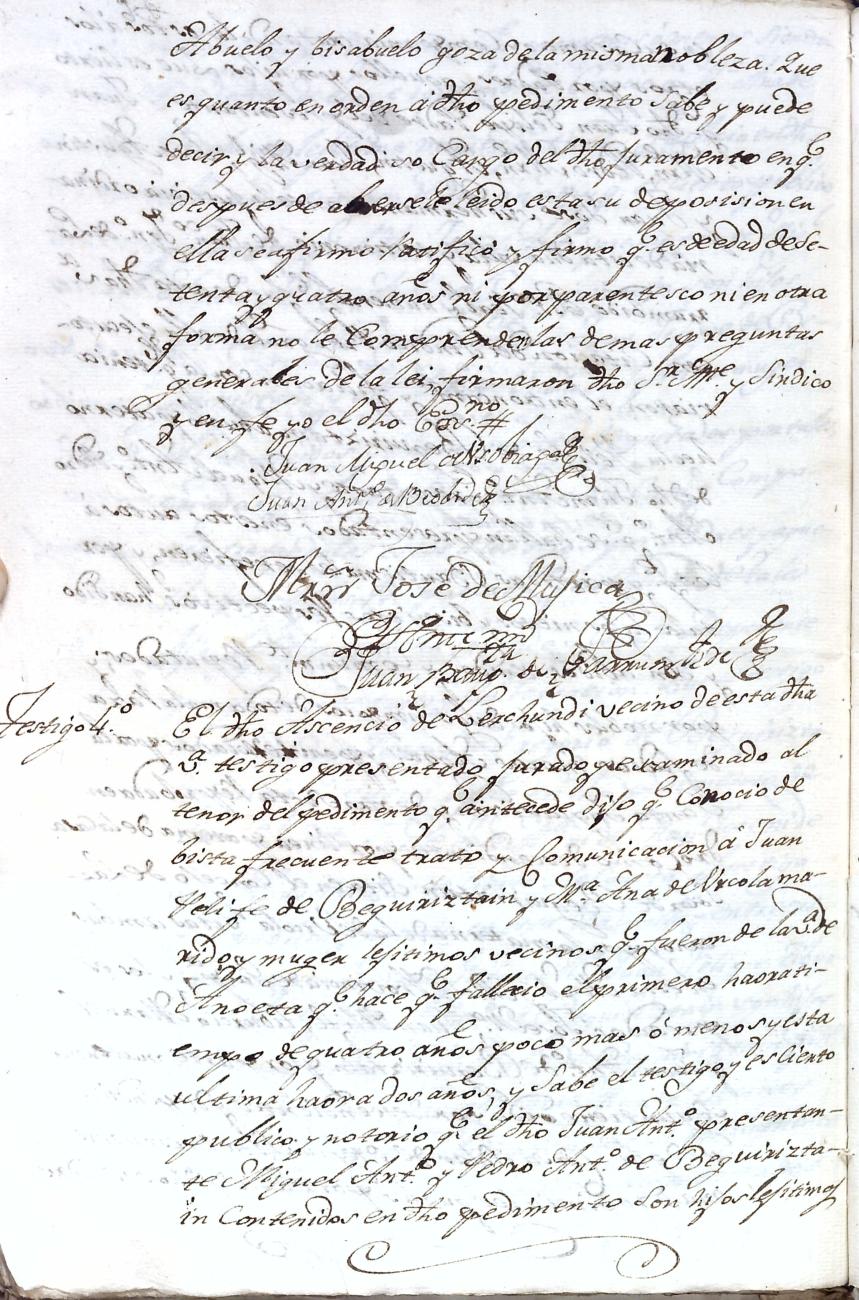 Abuelo y bisabuelo goza de la misma nobleza. Que
es quanto en orden a dho pedimento Sabe y puede
decir y la verdad so Cargo del dho Juramento en q.e
despues de aberse le leido esta su deposision en
ella se afirmo Ratificó y firmo q.e es de edad de Se-
tenta y quatro años ni por parentesco ni en otra
forma no le Comprenden las demas preguntas
generales de la lei, firmaron dho S.r Alc.e y Sindico
y en fe yo el dho Es.no #
Juan Miguel de
Juan Ant.o de
Mrñ Jose de Mujica
Ante mi
Juan Bap.ta de
Testigo 4.o
El dho Ascencio de Lerchundi vecino de esta dha
V.a testigo presentado, jurado y examinado al
tenor del pedimento q.e antecede dijo q.e Conocio de
bista frecuente trato y Comunicacion a Juan
Felife de Beguiriztain y M.a Ana de Urcola ma-
rido y muger lejitimos vecinos q.e fueron de la V.a de
Anoeta q.e hace q.e fallecio el primero haora ti-
empo de quatro años poco mas ó menos y esta
ultima haora dos años, y Sabe el testigo y es Cierto
publico y notorio q.e el dho Juan Ant.o presentan-
te Miguel Ant.o y Pedro Ant.o de Beguirizta-
in Contenidos en dho pedimento Son hijos lejitimos